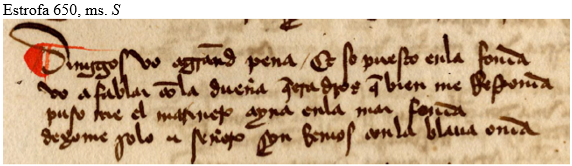 Estrofa 650, ms. S
Amiggos vo a grand pena / E so puesto enla fonda
vo a fablar cõ la dueña q̃era dios q̃ bien me Responda
puso me el marinero ayna enla mar fonda
dexome solo e señero syn Remos con la blaua onda